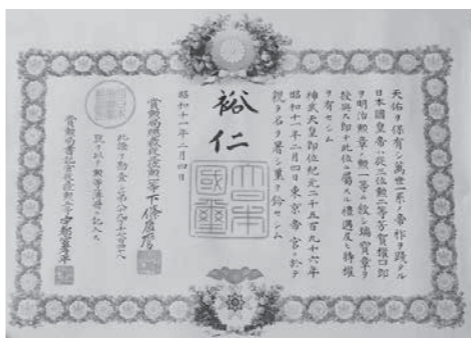 天佑ヲ保有シ萬世一系ノ帝祚ヲ踐タル
日本國皇帝ハ從三位勲二等芳賀權四郎
ヲ明治勲章ノ勲一等ニ敍シ瑞寶章ヲ
授與ス即チ此位ニ屬スル禮遇及ヒ特權
ヲ有セシム
神武天皇即位紀元二千五百九十六年
昭和十一年二月四日東京帝宮ニ於テ
親ラ名ヲ署シ璽ヲ鈐セシム
裕仁
大日本國璽
昭和十一年二月四日
賞勲局總裁 勲一等下條康麿
此證ヲ勘査シ第
號ヲ以テ勲等簿冊ニ記入ス
賞勲局書記官